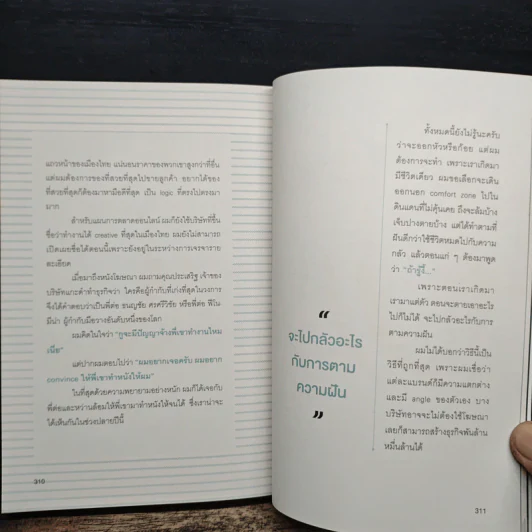 แถวหน้าของเมืองไทย แน่นอนราคาของพวกเขาสูงกว่าที่อื่น
แต่ผมต้องการของที่สวยที่สุดไปขายลูกค้า อยากได้ของ
ที่สวยที่สุดก็ต้องหามือดีที่สุด เป็น logic ที่ตรงไปตรงมา
มาก
สำหรับแผนการตลาดออนไลน์ ผมก็ยังใช้บริษัทที่ขึ้น
ชื่อว่าทำงานได้ creative ที่สุดในเมืองไทย ผมยังไม่สามารถ
เปิดเผยชื่อได้ตอนนี้เพราะยังอยู่ในระหว่างการเจรจาราย
ละเอียด
เมื่อมาถึงหนังโฆษณา ผมถามคุณประเสริฐ เจ้าของ
บริษัทแกะดำทำธุรกิจว่า ใครคือผู้กำกับที่เก่งที่สุดในวงการ
จึงได้คำตอบว่าเป็นพี่ต่อ ธนญชัย ศรศรีวิชัย หรือพี่ต่อ ฟีโน
มีน่า ผู้กำกับมือวางอันดับหนึ่งของโลก
ผมคิดในใจว่า “กูจะมีปัญญาจ้างพี่เขาทำงานไหม
เนี่ย”
แต่ปากผมตอบไปว่า “ผมอยากเจอครับ ผมอยาก
convince ให้พี่เขาทำหนังให้ผม”
ในที่สุดด้วยความพยายามอย่างหนัก ผมก็ได้เจอกับ
พี่ต่อและหว่านล้อมให้พี่เขามาทำหนังให้จนได้ ซึ่งเราน่าจะ
ได้เห็นกันในช่วงปลายปีนี้
310
“
จะไปกลัวอะไร
กับการตาม
ความฝัน
”
ทั้งหมดนี้ยังไม่รู้นะครับ
ว่าจะออกหัวหรือก้อย แต่ผม
ต้องการจะทำ เพราะเราเกิดมา
มีชีวิตเดียว ผมขอเลือกจะเดิน
ออกนอก comfort zone ไปใน
ดินแดนที่ไม่คุ้นเคย ถึงจะล้มบ้าง
เจ็บปางตายบ้าง แต่ได้ทำตามที่
ฝันดีกว่าใช้ชีวิตหมดไปกับความ
กลัว แล้วตอนแก่ ๆ ต้องมาพูด
ว่า “ถ้ารู้งี้...”
เพราะตอนเราเกิดมา
เรามาแต่ตัว ตอนจะตายเอาอะไร
ไปก็ไม่ได้ จะไปกลัวอะไรกับการ
ตามความฝัน
ผมไม่ได้บอกว่าวิธีนี้เป็น
วิธีที่ถูกที่สุด เพราะผมเชื่อว่า
แต่ละแบรนด์ก็มีความแตกต่าง
และมี angle ของตัวเอง บาง
บริษัทอาจจะไม่ต้องใช้โฆษณา
เลยก็สามารถสร้างธุรกิจพันล้าน
หมื่นล้านได้
311